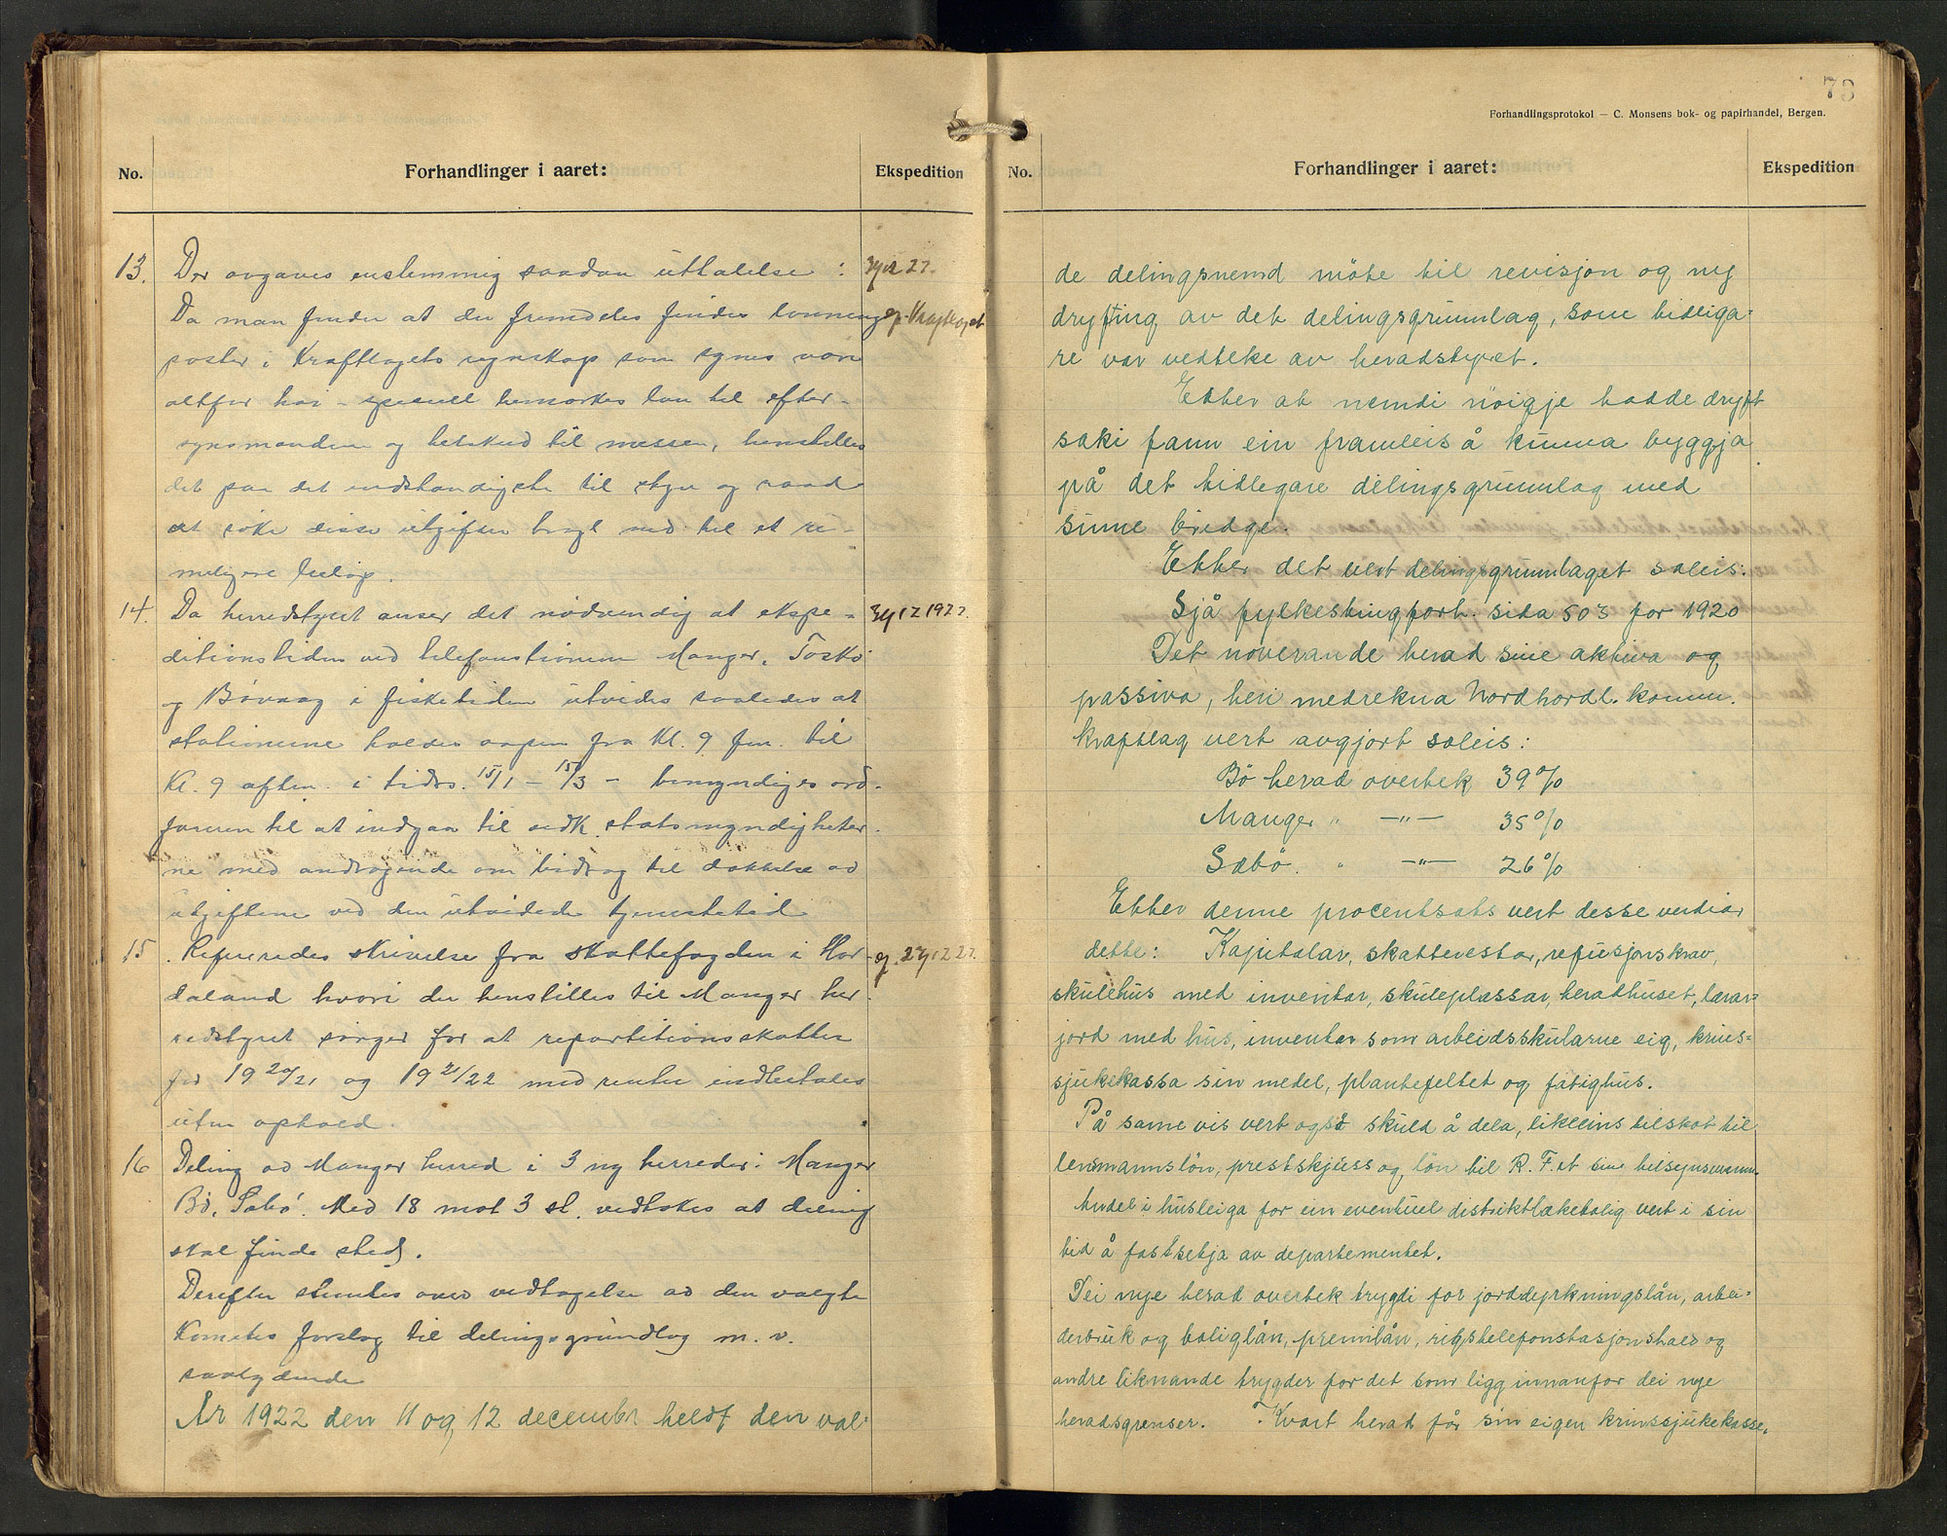 No. Forhandlinger i aaret: Ekspedition
13. Der avgaves enstemmig saadan uttalelse: 3/12 22.
Da man finder at der fremdeles findes lønnings-
poster i Kraftlagets regnskap som synes være
altfor høi - specielt bemerkes løn til efter-
synsmanden og tilskud til messen, henstilles
det paa det indstændigste til styre og raad
at søke disse utgifter bragt ned til et ri-
meligere beløp.
14. Da herredstyret anser det nødvendig at ekspe- 3/12 1922.
ditionstiden ved telefonstationene Manger, Toska
og Bøvaag i fisketiden utvides saaledes at
stationene holdes aapen fra Kl. 9 fm. til
Kl. 9 aften i tidsr. 15/1 - 15/3 - bemyndiges ord-
føreren til at indgaa til vedk. statsmyndigheter-
ne med andragende om bidrag til dækkelse av
utgiftene ved den utvidede tjenestetid
15. Refereredes skrivelse fra skattefogden i Hor-
daland hvori der henstilles til Manger her-
redstyret sørger for at repartitionsskatten
for 1920/21 og 1921/22 med renter indbetales
uten ophold.
16 Deling av Manger herred i 3 ny herreder: Manger
Bø, Sæbø. Med 18 mot 3 st. vedtokes at deling
skal finde sted.
Derefter stemtes over vedtagelse av den valgte
Komites forslag til delingsgrundlag m. v.
saalydende
År 1922 den 11 og 12 december heldt den val-
73
Forhandlingsprotokol — C. Monsens bok- og papirhandel, Bergen.
No. Forhandlinger i aaret: Ekspedition
de delingsnemd møte til revisjon og ny
dryfting av det delingsgrunnlag, som tidliga-
re var vedteke av heradstyret.
Etter at nemdi nøigje hadde dryft
saki fann ein framleis å kunna byggja
på det tidlegare delingsgrunnlag med
sinne bridge.
Etter det vert delingsgrunnlaget soleis:
Sjå fylkestingforh. sida 503 for 1920
Det noverande herad sine aktiva og
passiva, heri medrekna Nordhordl. komm.
kraftlag vert avgjort soleis:
Bø herad overtek 39%
Manger " —"— 35%
Sæbø. " —"— 26%
Etter denne procentsats vert desse verdiar
dette: Kapitalar, skatterestar, refusjonskrav,
skulehus med inventar, skuleplassar, heradhuset, lærar-
jord med hus, inventar som arbeidsskularne eig, krins-
sjukekassa sin medel, plantefeltet og fatighus.
På same vis vert også skuld å dela, likeeins tilskot til
lensmannsløn, prestskjuss og løn til R. F. et sine tilsynsmenn.
Andel i husleiga for ein eventuel distriktlækebolig vert i sin
tid å fastsetja av departementet.
Dei nye herad overtek trygdi for jorddyrkningslån, arbei-
derbruk og boliglån, premilån, rikstelefonstasjonshald og
andre liknande trygder for det som ligg innanfor dei nye
heradsgrenser. Kvart herad får sin eigen krinssjukekasse.